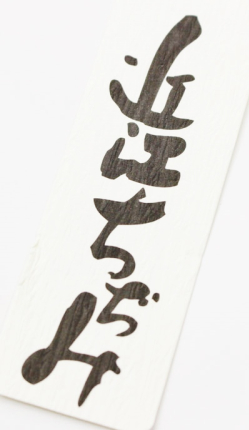 近江ちぢみ